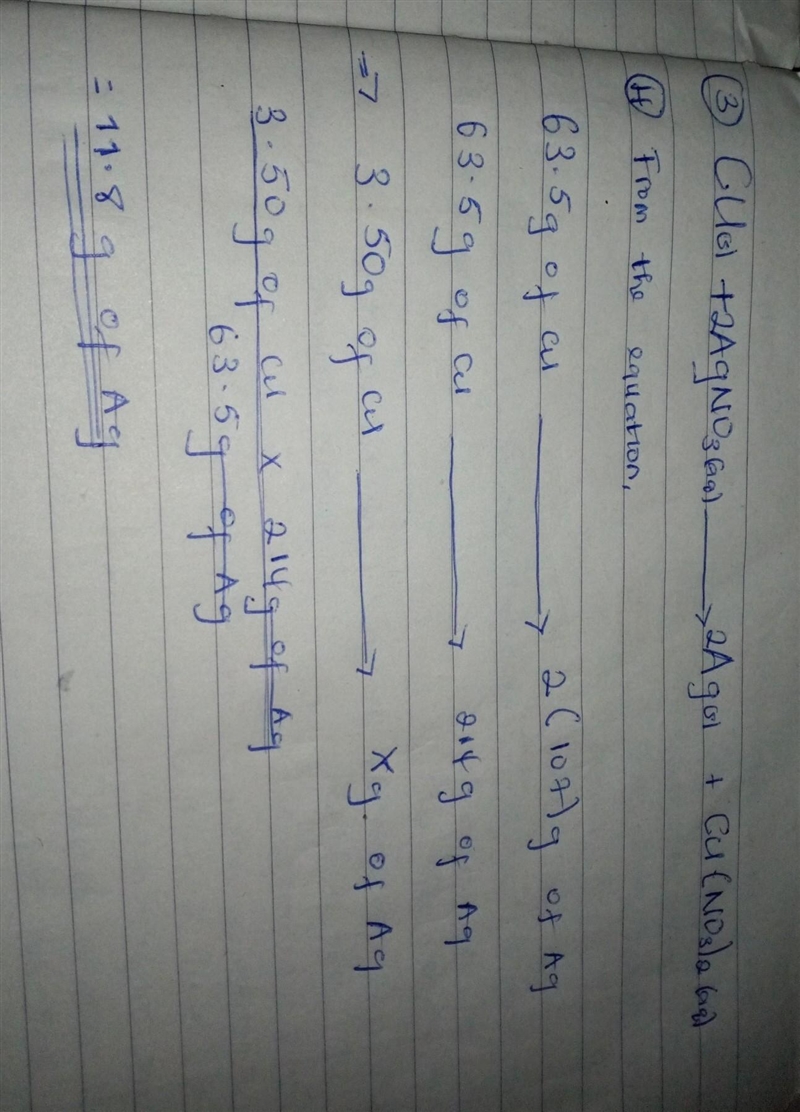 ③ Cu(s) + 2AgNO3(aq) ⟶ 2Ag(s) + Cu(NO3)2(aq)
From the equation,
63.5g of Cu ⟶ 2(107)g of Ag
63.5g of Cu ⟶ 214g of Ag
=> 3.50g of Cu ⟶ Xg. of Ag
3.50g of Cu x 214g of Ag
63.5g of Ag
= 11.8g of Ag